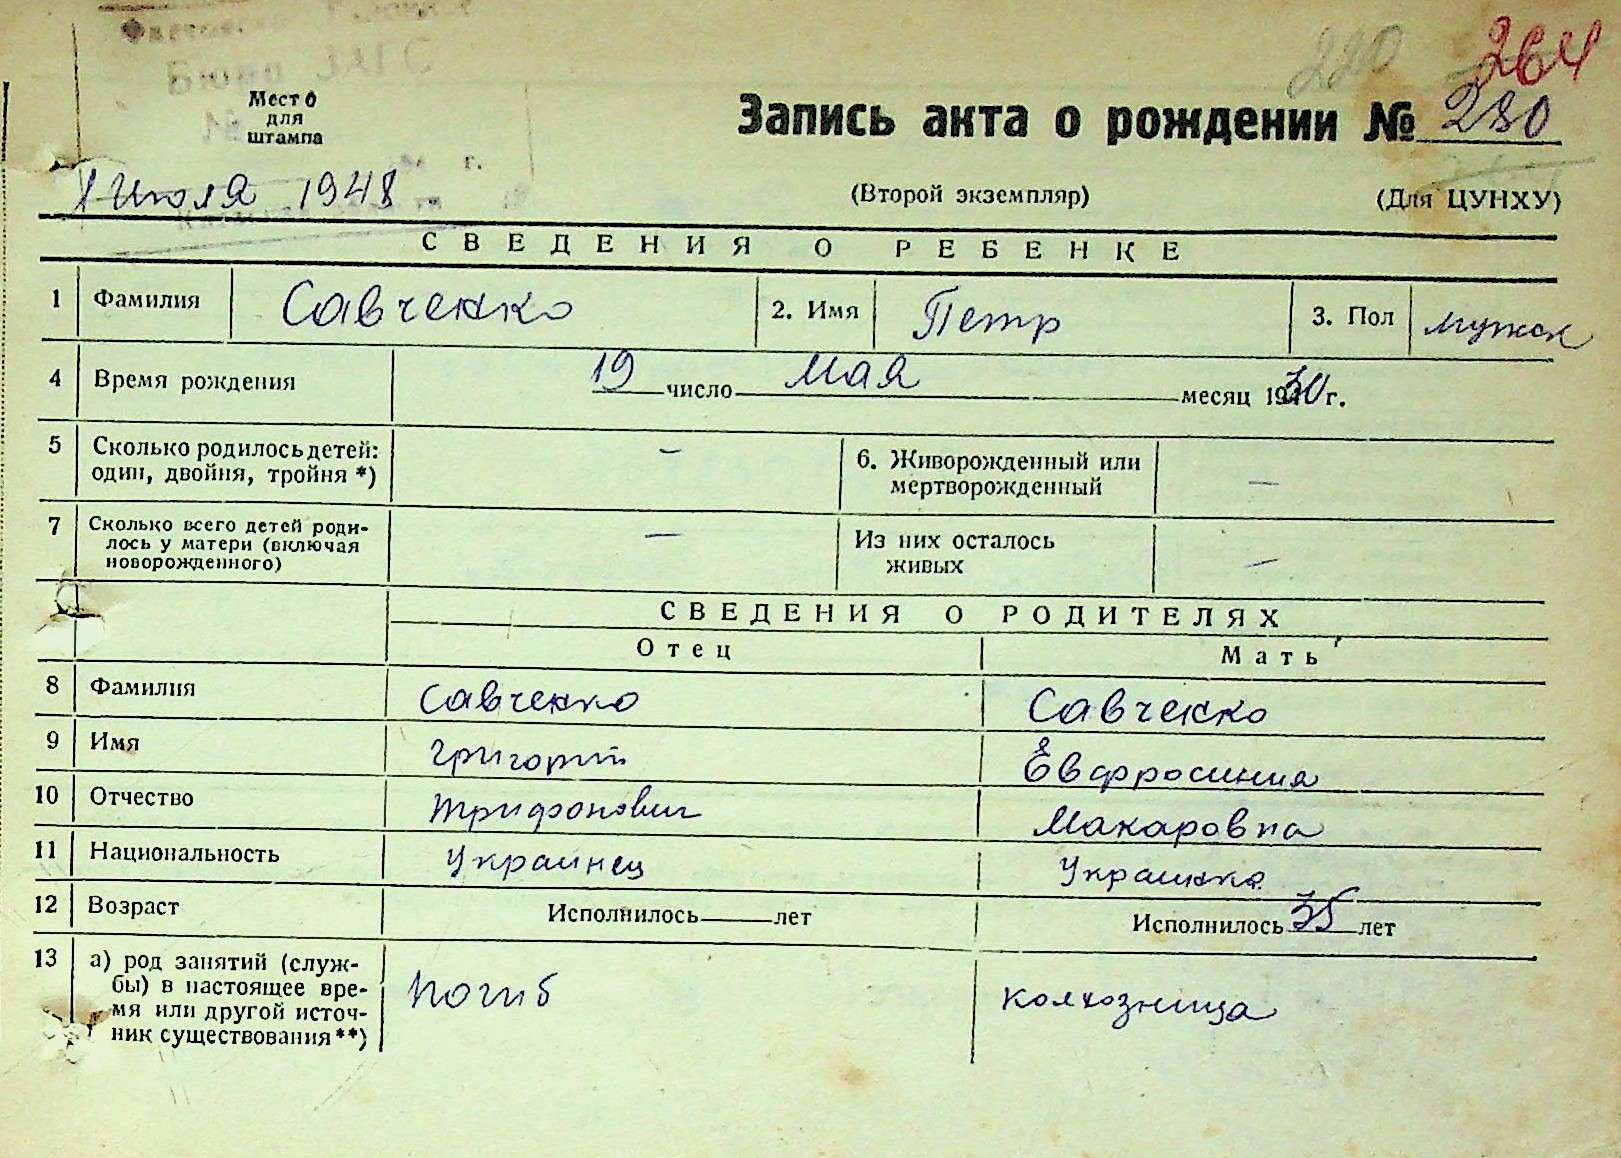 Бюро ЗАГС
220
264
Место
для
штампа
Запись акта о рождении № 280
1 Июля 1948 г.
(Второй экземпляр)
(Для ЦУНХУ)
СВЕДЕНИЯ О РЕБЕНКЕ
1 Фамилия Савченко 2. Имя Петр 3. Пол мужск
4 Время рождения 19 число Мая месяц 1930 г.
5 Сколько родилось детей: один, двойня, тройня *) — 6. Живорожденный или мертворожденный —
7 Сколько всего детей роди-
лось у матери (включая
новорожденного) — Из них осталось живых —
СВЕДЕНИЯ О РОДИТЕЛЯХ
Отец Мать
8 Фамилия Савченко Савченко
9 Имя Григорий Евфросиния
10 Отчество Трифонович Макаровна
11 Национальность Украинец Украинка
12 Возраст Исполнилось — лет Исполнилось 35 лет
13 а) род занятий (служ-
бы) в настоящее вре-
мя или другой источ-
ник существования **) погиб колхозница